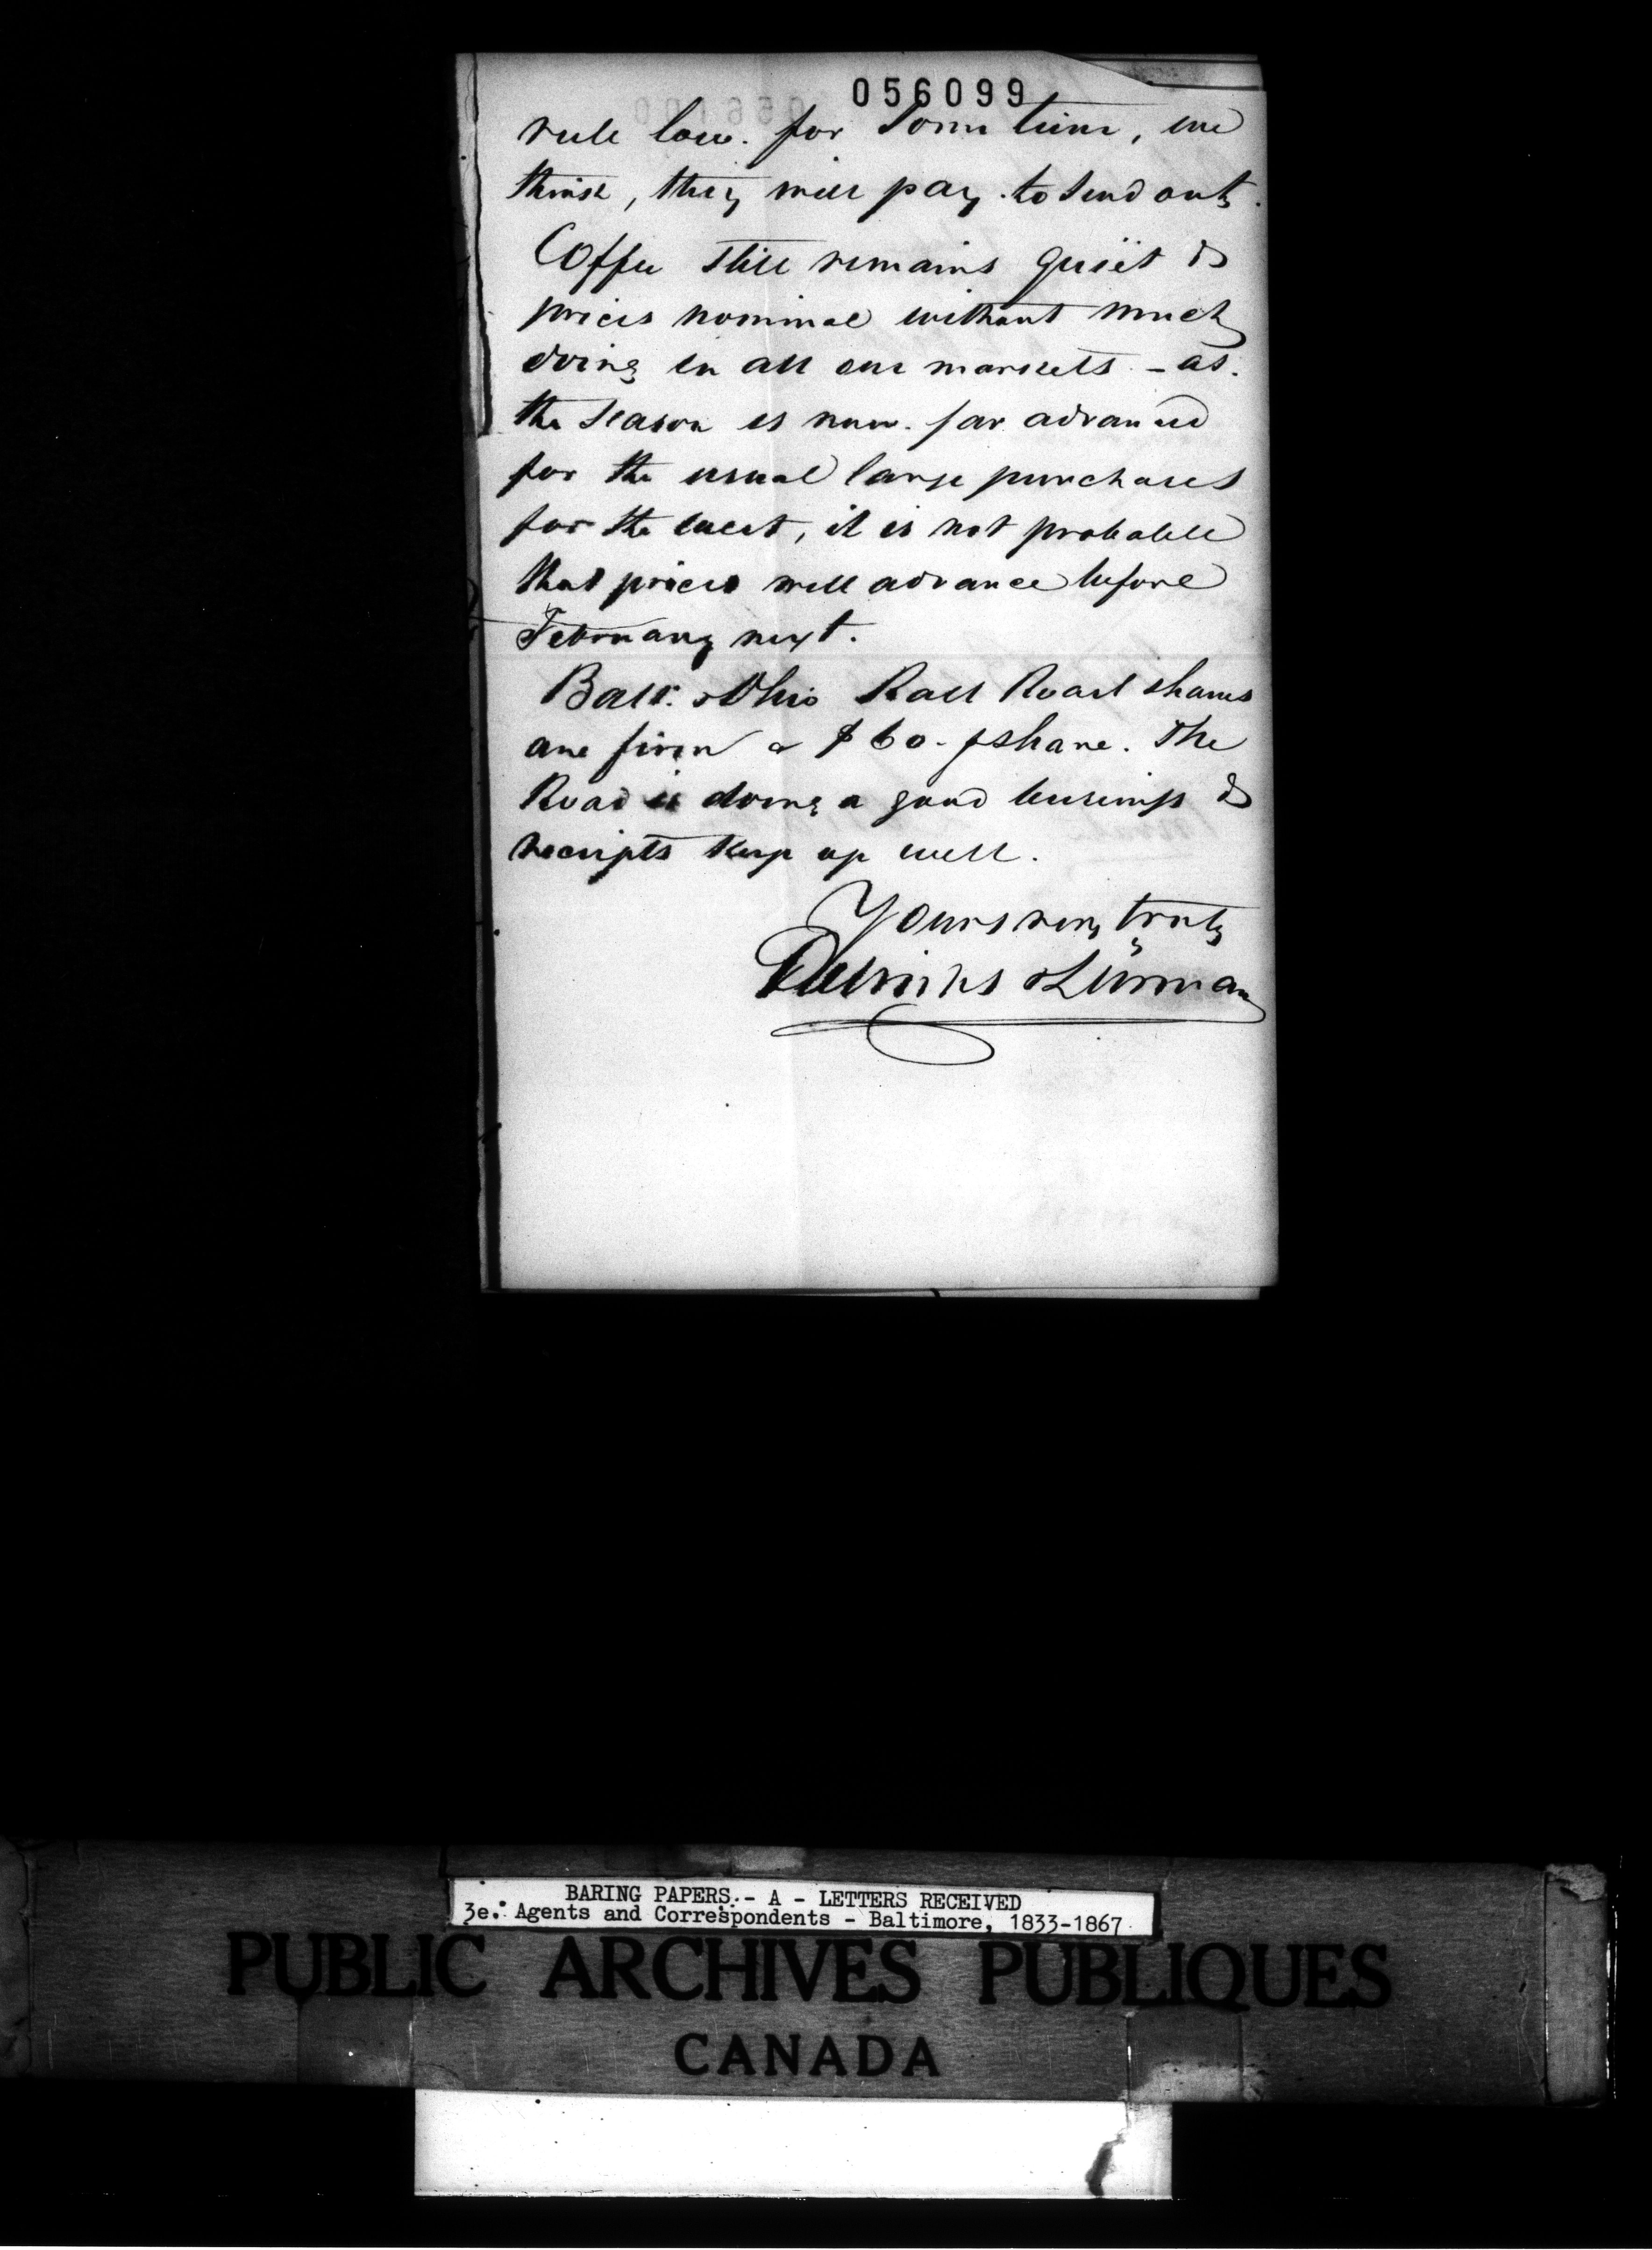 056099
rule low. for some time, we
think, they will pay. to send out.
Coffee still remains quiet &
prices nominal without much
doing in all our markets - as.
the season is now. far advanced
for the usual large purchases
for the west, it is not probable
that prices will advance before
February next.
Balt. & Ohio Rail Road shares
are firm a $60. p share. The
Road is doing a good business &
receipts keep up well.
Yours very truly
Oelrichs & Lürman
BARING PAPERS.- A - LETTERS RECEIVED
3e. Agents and Correspondents - Baltimore, 1833-1867.
PUBLIC ARCHIVES PUBLIQUES
CANADA